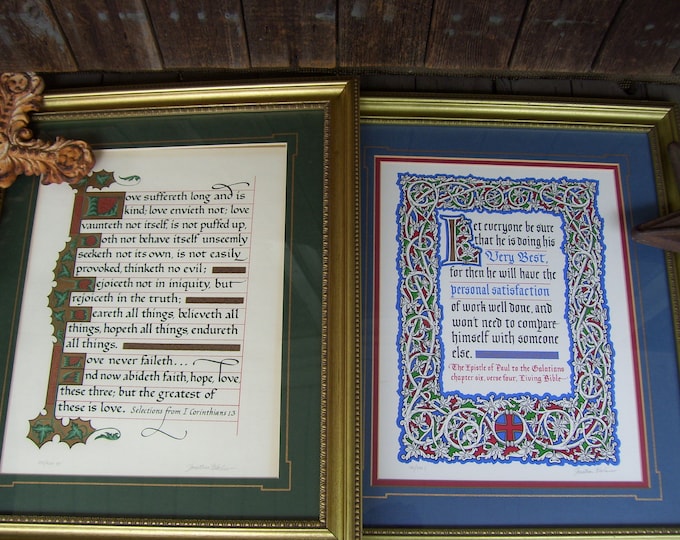 Love suffereth long and is
kind; love envieth not; love
vaunteth not itself, is not puffed up,
Doth not behave itself unseemly
seeketh not its own, is not easily
provoked, thinketh no evil;
Rejoiceth not in iniquity, but
rejoiceth in the truth;
Beareth all things, believeth all
things, hopeth all things, endureth
all things.
Love never faileth...
And now abideth faith, hope, love,
these three; but the greatest of
these is love. Selections from I Corinthians 13
Let everyone be sure
that he is doing his
Very Best,
for then he will have the
personal satisfaction
of work well done, and
won't need to compare
himself with someone
else.
The Epistle of Paul to the Galatians
chapter six, verse four, Living Bible